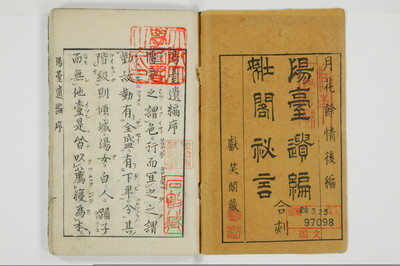 月花餘情後編
陽臺遺編
妣閣祕言
合刻
獻笑閣藏
28.3.25
97098
陽臺遺編序
博愛之謂色行而宜之之謂
勤故勤有全盛有下卑分其
階級則傾城湯女白人踊子
而無他臺是皆以薦寢為本
陽臺遺編 序